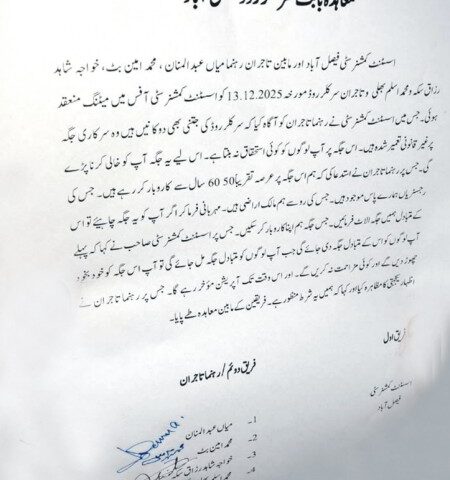 معاہدہ بابت سرکلر روڈ فیصل آباد
اسسٹنٹ کمشنر سٹی فیصل آباد اور مابین تاجران رہنما میاں عبدالمنان، محمد امین بٹ، خواجہ شاہد
رزاق سکہ و محمد اسلم بھلی و تاجران سرکلر روڈ مورخہ 13.12.2025 کو اسسٹنٹ کمشنر سٹی آفس میں میٹنگ منعقد
ہوئی۔ جس میں اسسٹنٹ کمشنر سٹی نے رہنما تاجران کو آگاہ کیا کہ سرکلر روڈ کی جتنی بھی دوکانیں ہیں وہ سرکاری جگہ
پر غیر قانونی تعمیر شدہ ہیں۔ اس جگہ پر آپ لوگوں کو کوئی استحقاق نہ بنتا ہے۔ اس لیے یہ جگہ آپ کو خالی کرنا پڑے
گی۔ جس پر رہنما تاجران نے استدعا کی کہ ہم اس جگہ پر عرصہ تقریباً 50 60 سال سے کاروبار کر رہے ہیں۔ جس کی
رجسٹریاں ہمارے پاس موجود ہیں۔ جس کی روسے ہم مالک اراضی ہیں۔ مہربانی فرما کر اگر آپ کو یہ جگہ چاہیئے تو اس
کے متبادل ہمیں جگہ الاٹ فرمائیں۔ جس جگہ ہم اپنا کاروبار کر سکیں۔ جس پر اسسٹنٹ کمشنر سٹی صاحب نے کہا کہ پہلے
آپ لوگوں کو اس کے متبادل جگہ دی جائے گی جب آپ لوگوں کو متبادل جگہ مل جائے گی تو آپ اس جگہ کو خود بخود
چھوڑ دیں گے اور کوئی مزاحمت نہ کریں گے۔ اور اس وقت تک آپریشن مؤخر رہے گا۔ جس پر رہنما تاجران نے
اظہار یکجہتی کا مظاہرہ کیا اور کہا کہ ہمیں یہ شرط منظور ہے۔ فریقین کے مابین معاہدہ طے پایا۔
فریق اول
اسسٹنٹ کمشنر سٹی
فیصل آباد
فریق دوئم / رہنما تاجران
1۔ میاں عبدالمنان
2۔ محمد امین بٹ
3۔ خواجہ شاہد رزاق سکہ
4۔